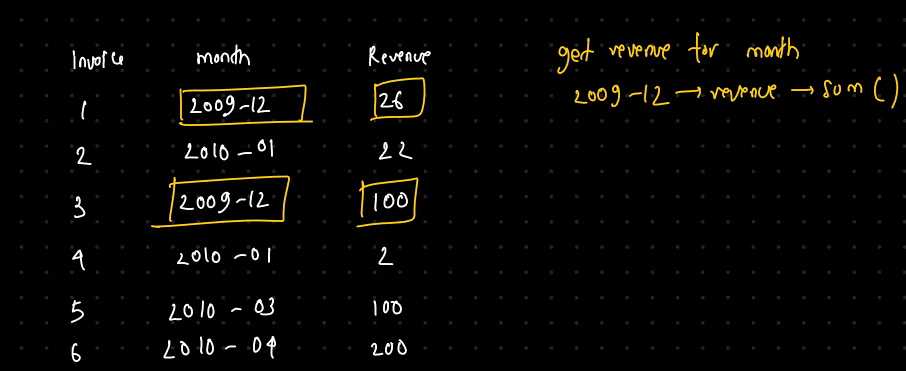 Invoice month Revenue
1 2009-12 26
2 2010-01 22
3 2009-12 100
4 2010-01 2
5 2010-03 100
6 2010-04 200
get revenue for month
2009-12 → revenue → sum()